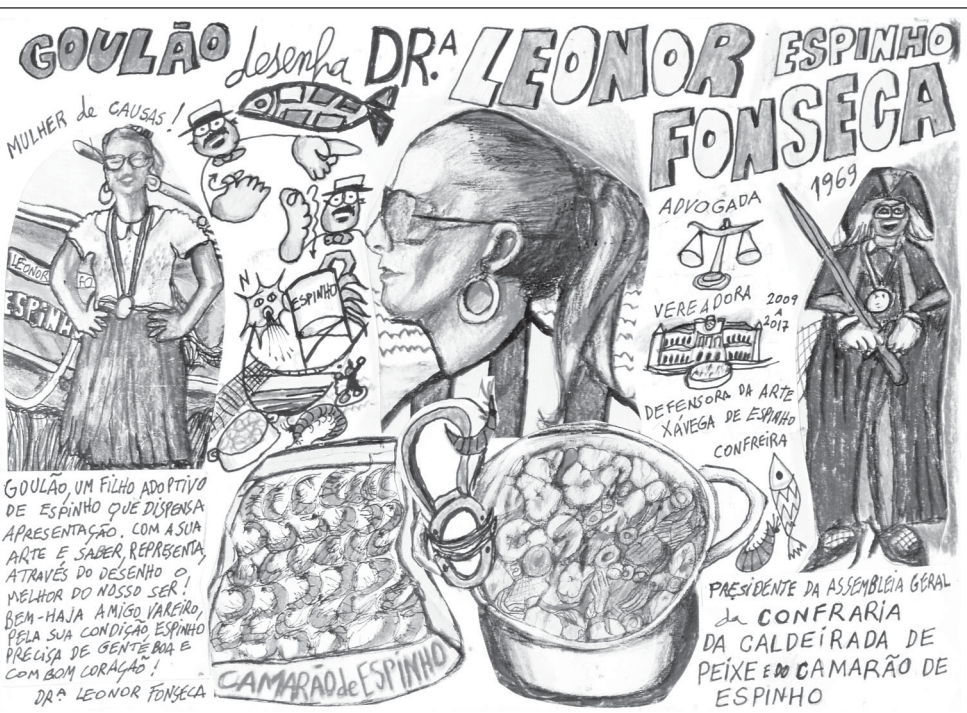 GOULÃO desenha DR.A LEONOR ESPINHO
FONSECA
1969
MULHER de CAUSAS!
LEONOR FO
ESPINH
ESPINHO
ADVOGADA
VEREADORA 2009
A
2017
DEFENSORA DA ARTE
XÁVEGA DE ESPINHO
CONFREIRA
GOULÃO, UM FILHO ADOPTIVO
DE ESPINHO QUE DISPENSA
APRESENTAÇÃO. COM A SUA
ARTE E SABER, REPRESENTA,
ATRAVÉS DO DESENHO O
MELHOR DO NOSSO SER!
BEM-HAJA AMIGO VAREIRO,
PELA SUA CONDIÇÃO, ESPINHO
PRECISA DE GENTE BOA E
COM BOM CORAÇÃO!
DRª LEONOR FONSECA
CAMARÃO de ESPINHO
PRESIDENTE DA ASSEMBLEIA GERAL
da CONFRARIA
DA CALDEIRADA DE
PEIXE E DO CAMARÃO DE
ESPINHO